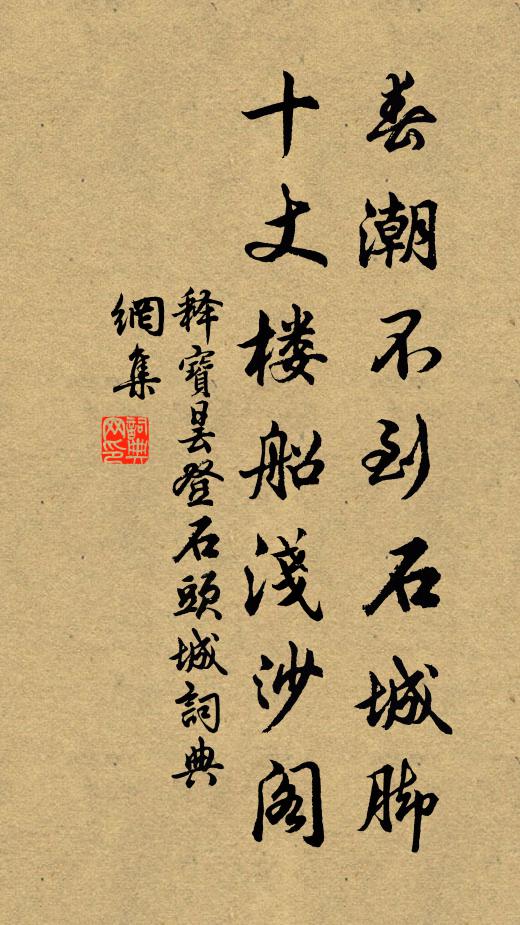 春潮不到石城脚
十丈楼船浅沙阁
释寶昙登石頭城詞典
網集
詞典网印